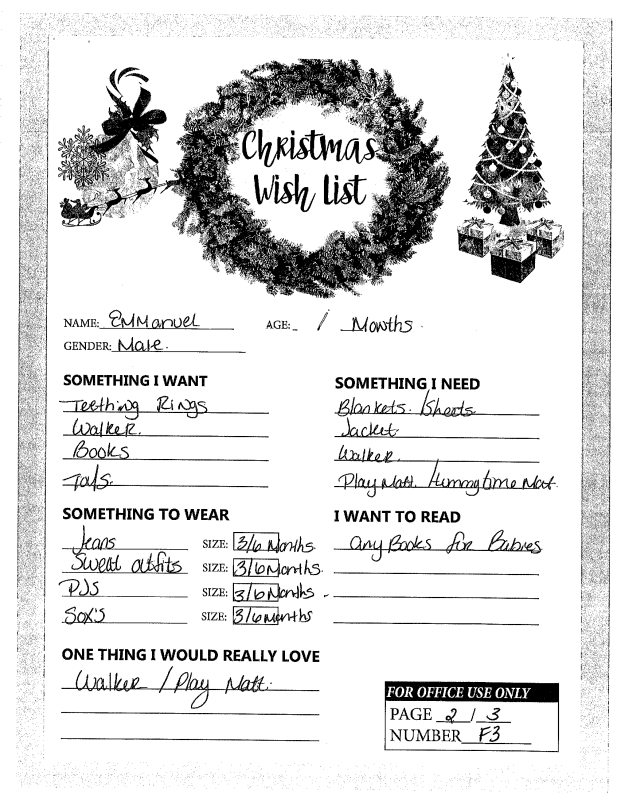 Christmas
Wish List
NAME: EMManuel AGE: 1 Months.
GENDER: Male.
SOMETHING I WANT
Teething Rings
Walker.
Books
Toys.
SOMETHING I NEED
Blankets. /Sheets
Jacket.
Walker.
Play Matt.
SOMETHING TO WEAR
Jeans SIZE: 3/6 Months.
Sweat outfits SIZE: 3/6 Months.
PJS SIZE: 3/6 Months -
Sox's SIZE: 3/6 Months
I WANT TO READ
any Books for Babies
ONE THING I WOULD REALLY LOVE
Walker / Play Matt.
FOR OFFICE USE ONLY
PAGE 2 / 3
NUMBER F3